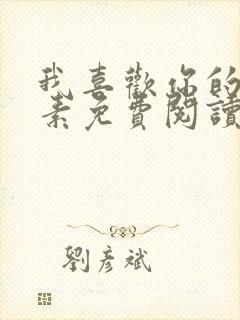 我喜歡你的
素免費閱讀
劉彥斌